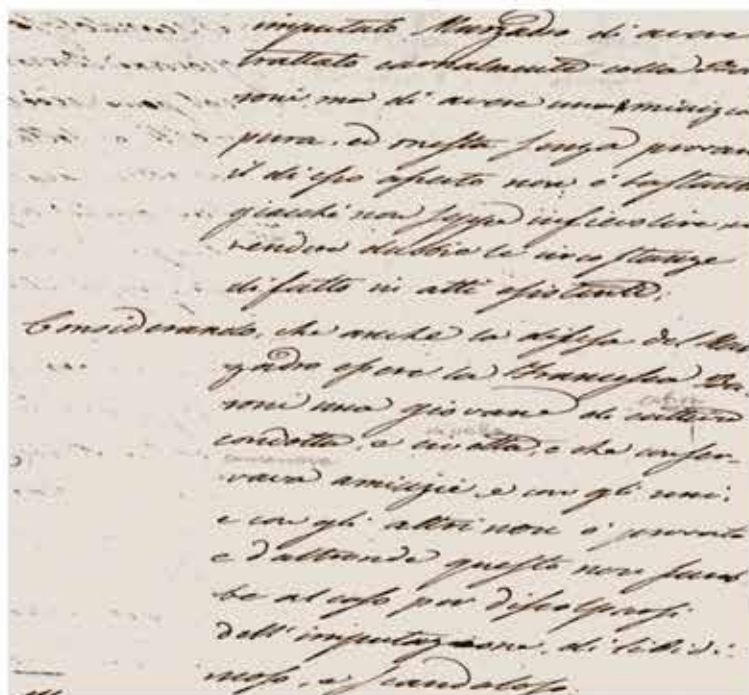 imputato Marzadro di avere
trattato carnalmente colla Ba
roni ma di avere una amicizia
pura, ed onesta senza provare
il di esso asserto non è bastante
giacchè non seppe infievolire e
rendere dubbie le circostanze
di fatto in atti esistenti.
Considerando, che anche la difesa del Mar
zadro essere la Francesca Ba
roni una giovane di cattiva
condotta, e che conser-
vava amicizie, e con gli uni,
e con gli altri non è provato
e d'altronde questo non sareb
be al caso per discolparsi
dell'imputazione, di libidi:
noso, e scandaloso.